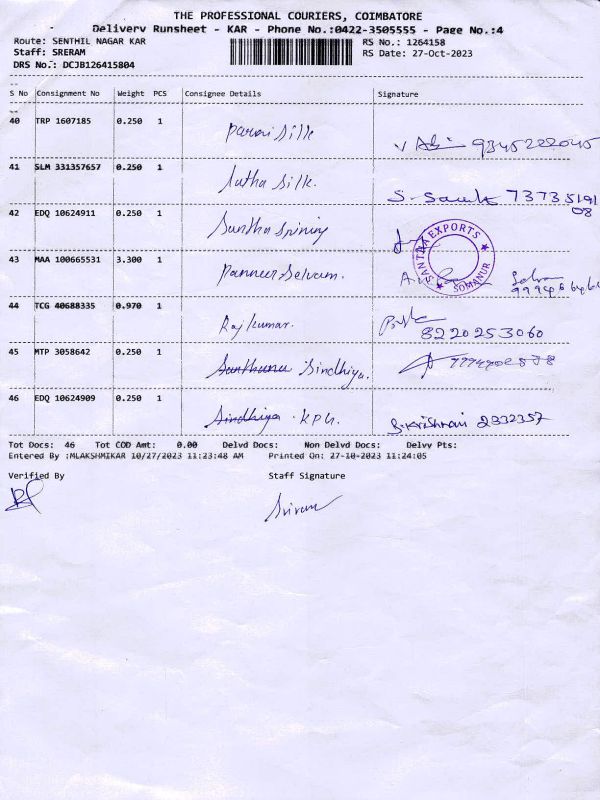 THE PROFESSIONAL COURIERS, COIMBATORE
Delivery Runsheet - KAR - Phone No.:0422-3505555 - Page No.:4
Route: SENTHIL NAGAR KAR RS No.: 1264158
Staff: SRERAM RS Date: 27-Oct-2023
DRS No.: DCJB126415804
S No Consignment No Weight PCS Consignee Details Signature
40 TRP 1607185 0.250 1 Silk 9345222045
41 SLM 331357657 0.250 1 Latha Silk. S. 7373519108
42 EDQ 10624911 0.250 1 Santha Spining
SANTHA EXPORTS
SOMANUR
43 MAA 100665531 3.300 1 Panneer Selvam.
44 TCG 40688335 0.970 1 Rajkumar. 8220253060
45 MTP 3058642 0.250 1 Sindhiya.
46 EDQ 10624909 0.250 1 Sindhiya KPG. S. Krishnan 2332357
Tot Docs: 46 Tot COD Amt: 0.00 Delvd Docs: Non Delvd Docs: Delvy Pts:
Entered By :MLAKSHMIKAR 10/27/2023 11:23:48 AM Printed On: 27-10-2023 11:24:05
Verified By Staff Signature
Sriram